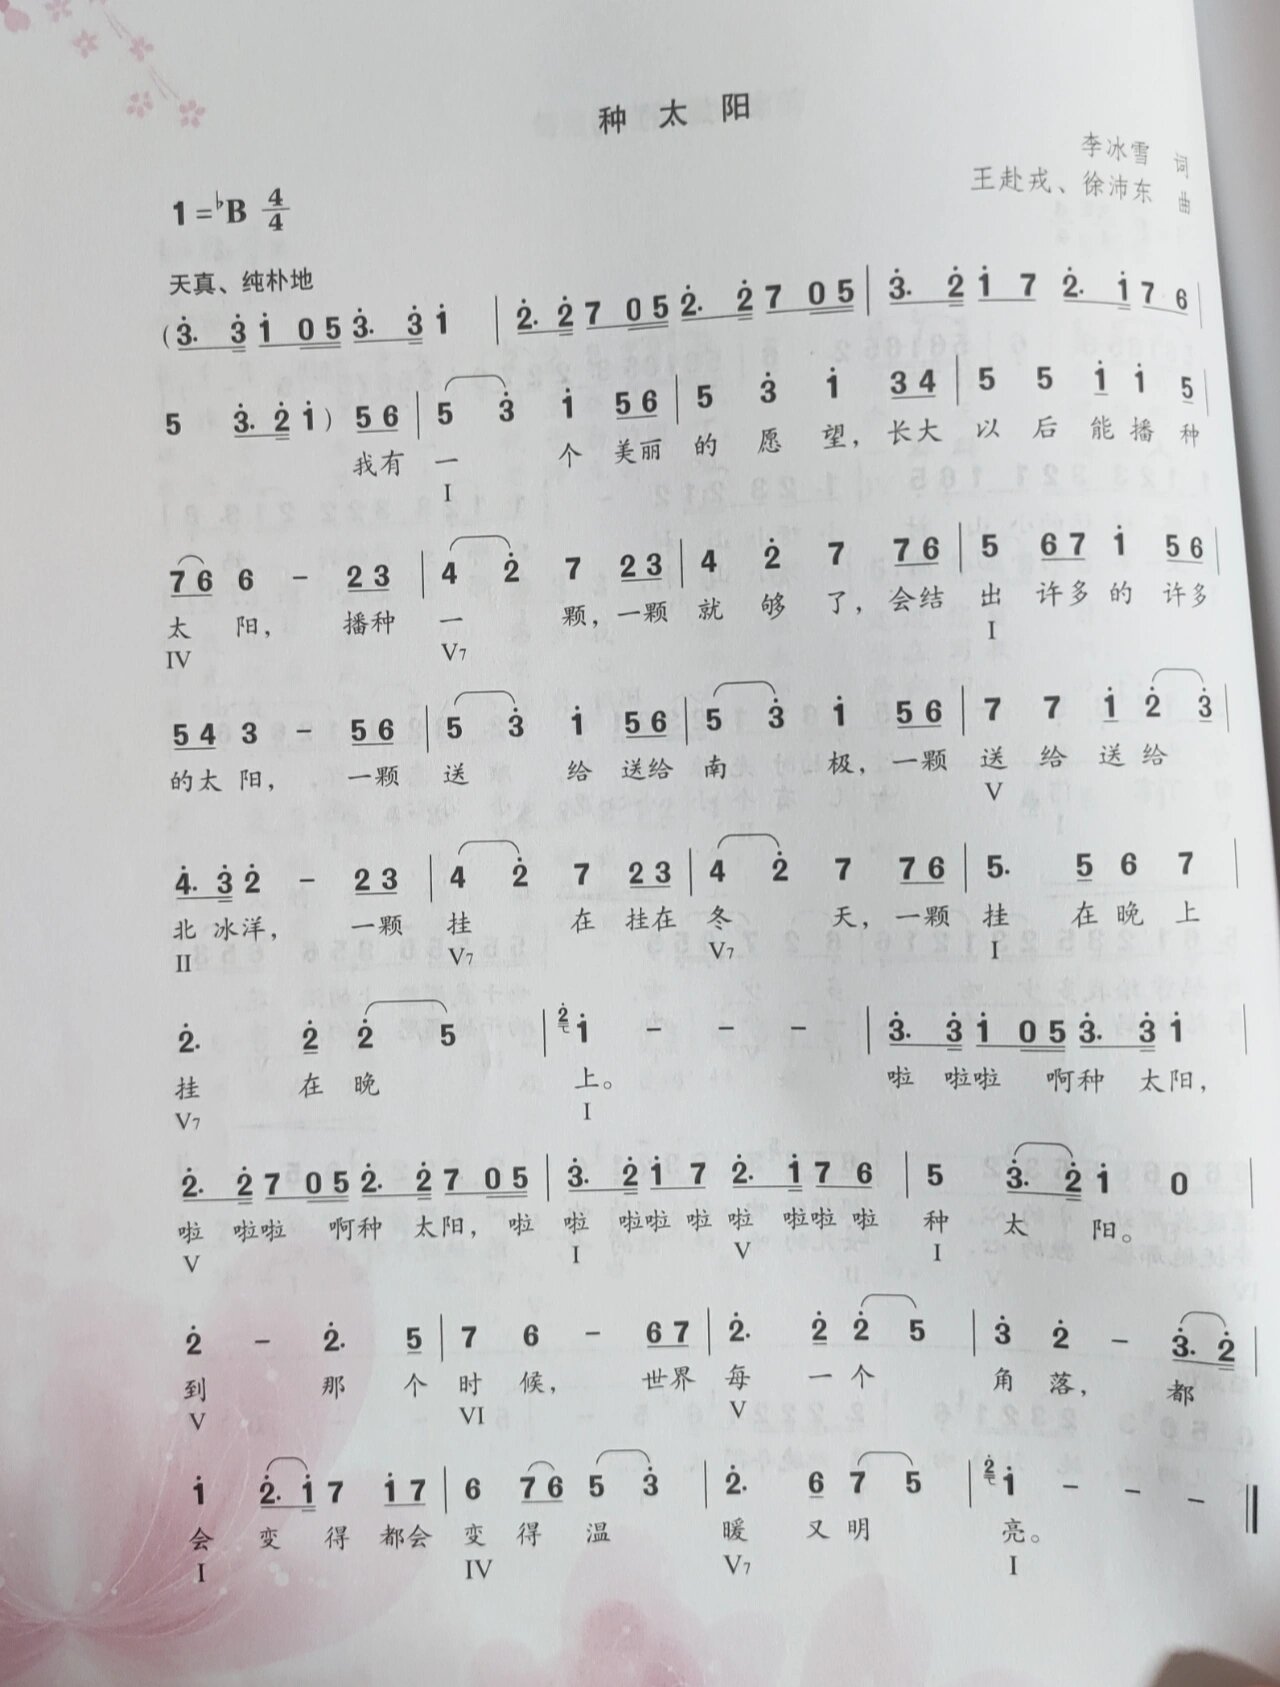 种太阳
李冰雪 词
王赴戎、徐沛东 曲
1=♭B 4/4
天真、纯朴地
(3̇. 3̇ 1̇ 0 5 3̇. 3̇ 1̇ | 2̇. 2̇ 7 0 5 2̇. 2̇ 7 0 5 | 3̇. 2̇ 1̇ 7 2̇. 1̇ 7 6 |
5 3̇. 2̇ 1̇) 5 6 | 5 3̇ 1̇ 5 6 | 5 3̇ 1̇ 3 4 | 5 5 1̇ 1̇ 5 |
我有 一 个 美丽 的 愿 望, 长大 以 后 能 播 种
I
7 6 6 – 2 3 | 4 2̇ 7 2 3 | 4 2̇ 7 7 6 | 5 6 7 1̇ 5 6 |
太 阳, 播种 一 颗, 一颗 就 够 了, 会结 出 许多 的 许多
IV V7 I
5 4 3 – 5 6 | 5 3̇ 1̇ 5 6 | 5 3̇ 1̇ 5 6 | 7 7 1̇ 2̇ 3̇ |
的太 阳, 一颗 送 给 送给 南 极, 一颗 送 给 送 给
V
4̇. 3̇ 2̇ – 2 3 | 4 2̇ 7 2 3 | 4 2̇ 7 7 6 | 5. 5 6 7 |
北 冰洋, 一颗 挂 在 挂在 冬 天, 一颗 挂 在 晚 上
II V7 V7 I
2̇. 2̇ 2̇ 5 | 2̇ 1̇ – – – | 3̇. 3̇ 1̇ 0 5 3̇. 3̇ 1̇ |
挂 在 晚 上。 啦 啦啦 啊种 太阳,
V7 I
2̇. 2̇ 7 0 5 2̇. 2̇ 7 0 5 | 3̇. 2̇ 1̇ 7 2̇. 1̇ 7 6 | 5 3̇. 2̇ 1̇ 0 |
啦 啦啦 啊种 太阳, 啦 啦 啦啦 啦 啦 啦啦 啦 种 太 阳。
V I V I
2̇ – 2̇. 5 | 7 6 – 6 7 | 2̇. 2̇ 2̇ 5 | 3̇ 2̇ – 3̇. 2̇ |
到 那 个 时 候, 世界 每 一 个 角 落, 都
V VI V
1̇ 2̇. 1̇ 7 1̇ 7 | 6 7 6 5 3̇ | 2̇. 6 7 5 | 2̇ 1̇ – – – ‖
会 变 得 都会 变 得 温 暖 又 明 亮。
I IV V7 I